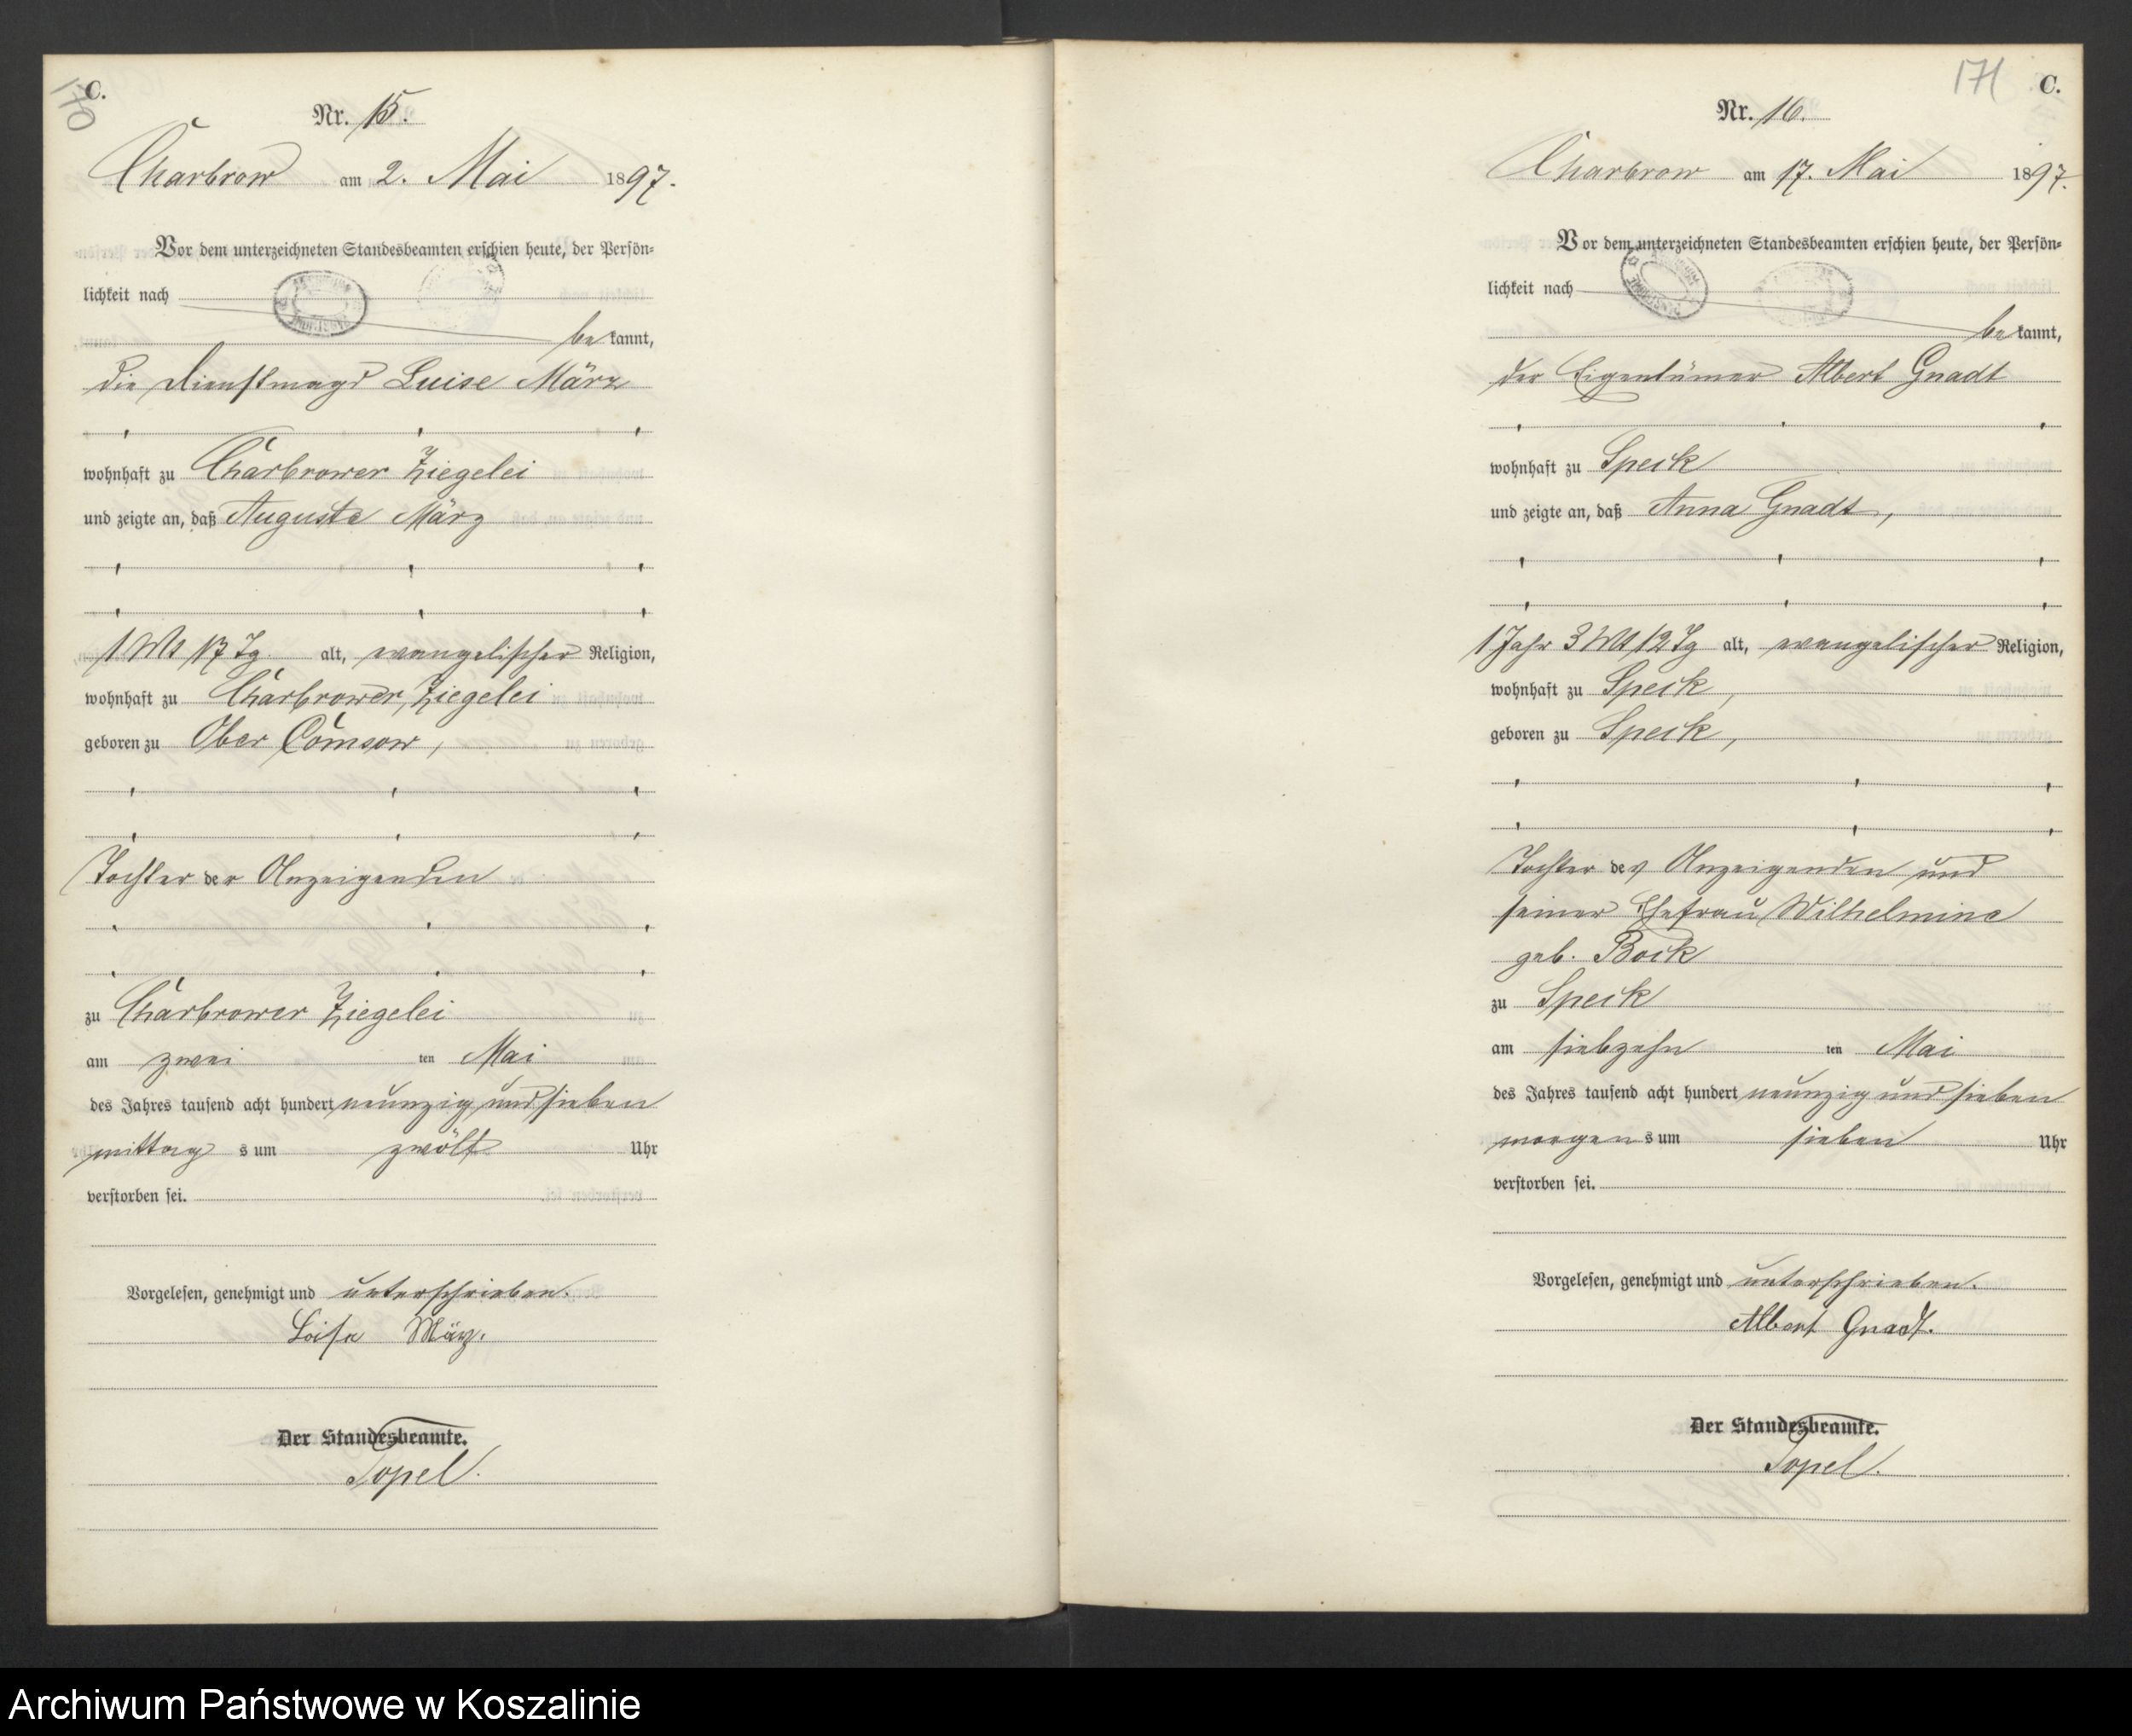 170
C.
Nr. 15.
Charbrow am 2. Mai 1897.
Vor dem unterzeichneten Standesbeamten erschien heute, der Persön=
lichkeit nach
bekannt,
die Dienstmagd Luise März
wohnhaft zu Charbrower Ziegelei
und zeigte an, daß Auguste März
1 Mt 17 Tg. alt, evangelischer Religion,
wohnhaft zu Charbrower Ziegelei
geboren zu Ober Comsow,
Tochter der Anzeigenden
zu Charbrower Ziegelei
am zwei ten Mai
des Jahres tausend acht hundert neunzig und sieben
mittag s um zwölf Uhr
verstorben sei.
Vorgelesen, genehmigt und unterschrieben.
Loise März.
Der Standesbeamte.
Topel.
171
C.
Nr. 16.
Charbrow am 17. Mai 1897.
Vor dem unterzeichneten Standesbeamten erschien heute, der Persön=
lichkeit nach
bekannt,
der Eigentümer Albert Gnadt
wohnhaft zu Speck
und zeigte an, daß Anna Gnadt,
1 Jahr 3 Mt 12 Tg alt, evangelischer Religion,
wohnhaft zu Speck,
geboren zu Speck,
Tochter des Anzeigenden und
seiner Ehefrau Wilhelmine
geb. Bock
zu Speck
am siebzehn ten Mai
des Jahres tausend acht hundert neunzig und sieben
morgen s um sieben Uhr
verstorben sei.
Vorgelesen, genehmigt und unterschrieben.
Albert Gnadt.
Der Standesbeamte.
Topel.
Archiwum Państwowe w Koszalinie